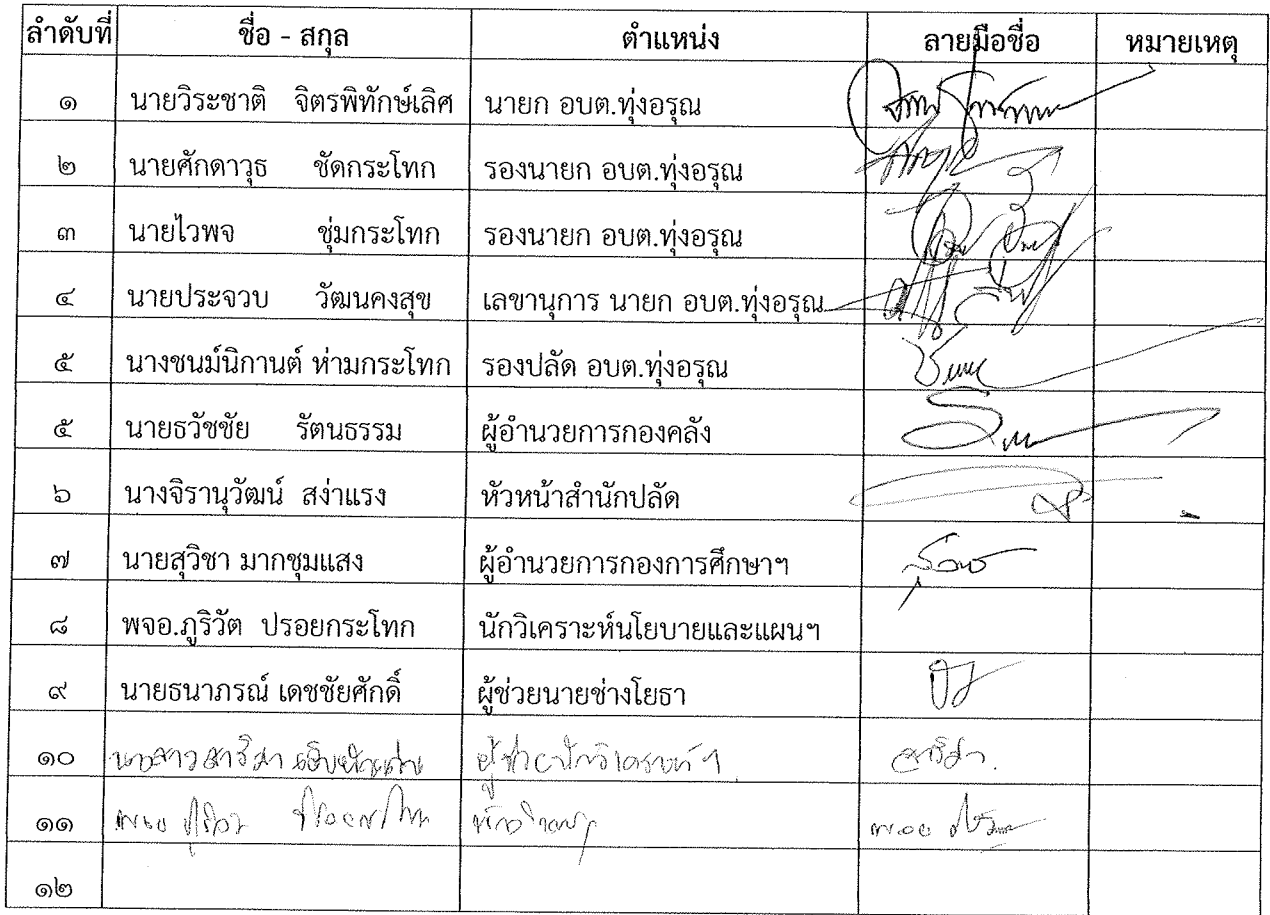 ลำดับที่ ชื่อ - สกุล ตำแหน่ง ลายมือชื่อ หมายเหตุ
๑ นายวิระชาติ จิตรพิทักษ์เลิศ นายก อบต.ทุ่งอรุณ
๒ นายศักดาวุธ ชัดกระโทก รองนายก อบต.ทุ่งอรุณ
๓ นายไวพจ ชุ่มกระโทก รองนายก อบต.ทุ่งอรุณ
๔ นายประจวบ วัฒนคงสุข เลขานุการ นายก อบต.ทุ่งอรุณ
๕ นางชนม์นิกานต์ ห่ามกระโทก รองปลัด อบต.ทุ่งอรุณ
๕ นายธวัชชัย รัตนธรรม ผู้อำนวยการกองคลัง
๖ นางจิรานุวัฒน์ สง่าแรง หัวหน้าสำนักปลัด
๗ นายสุวิชา มากชุมแสง ผู้อำนวยการกองการศึกษาฯ
๘ พจอ.ภูริวัต ปรอยกระโทก นักวิเคราะห์นโยบายและแผนฯ
๙ นายธนาภรณ์ เดชชัยศักดิ์ ผู้ช่วยนายช่างโยธา
๑๐ นางสาวสาริศา ผู้ช่วยนักวิเคราะห์ฯ สาริศา
๑๑
๑๒